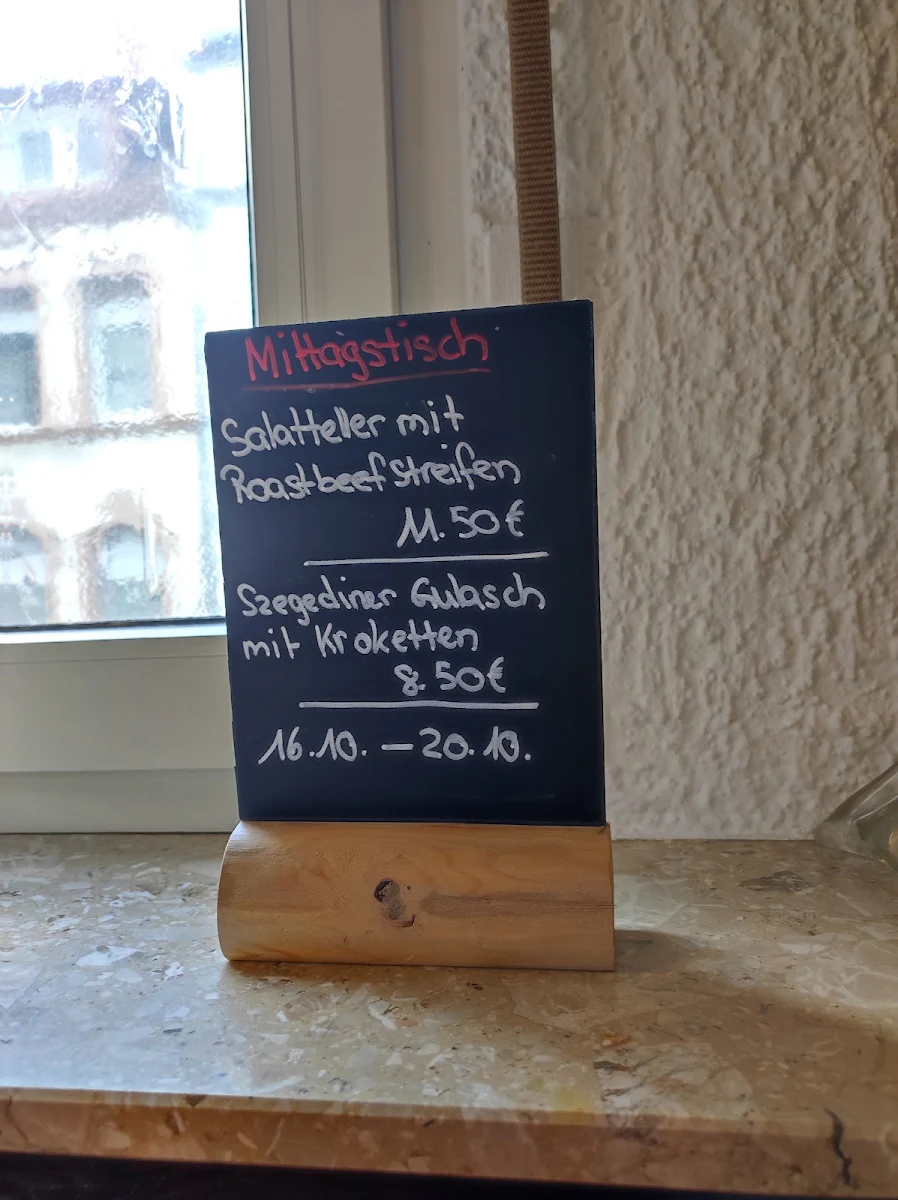 Mittagstisch
Salatteller mit
Roastbeefstreifen
11.50€
Szegediner Gulasch
mit Kroketten
8.50€
16.10. – 20.10.